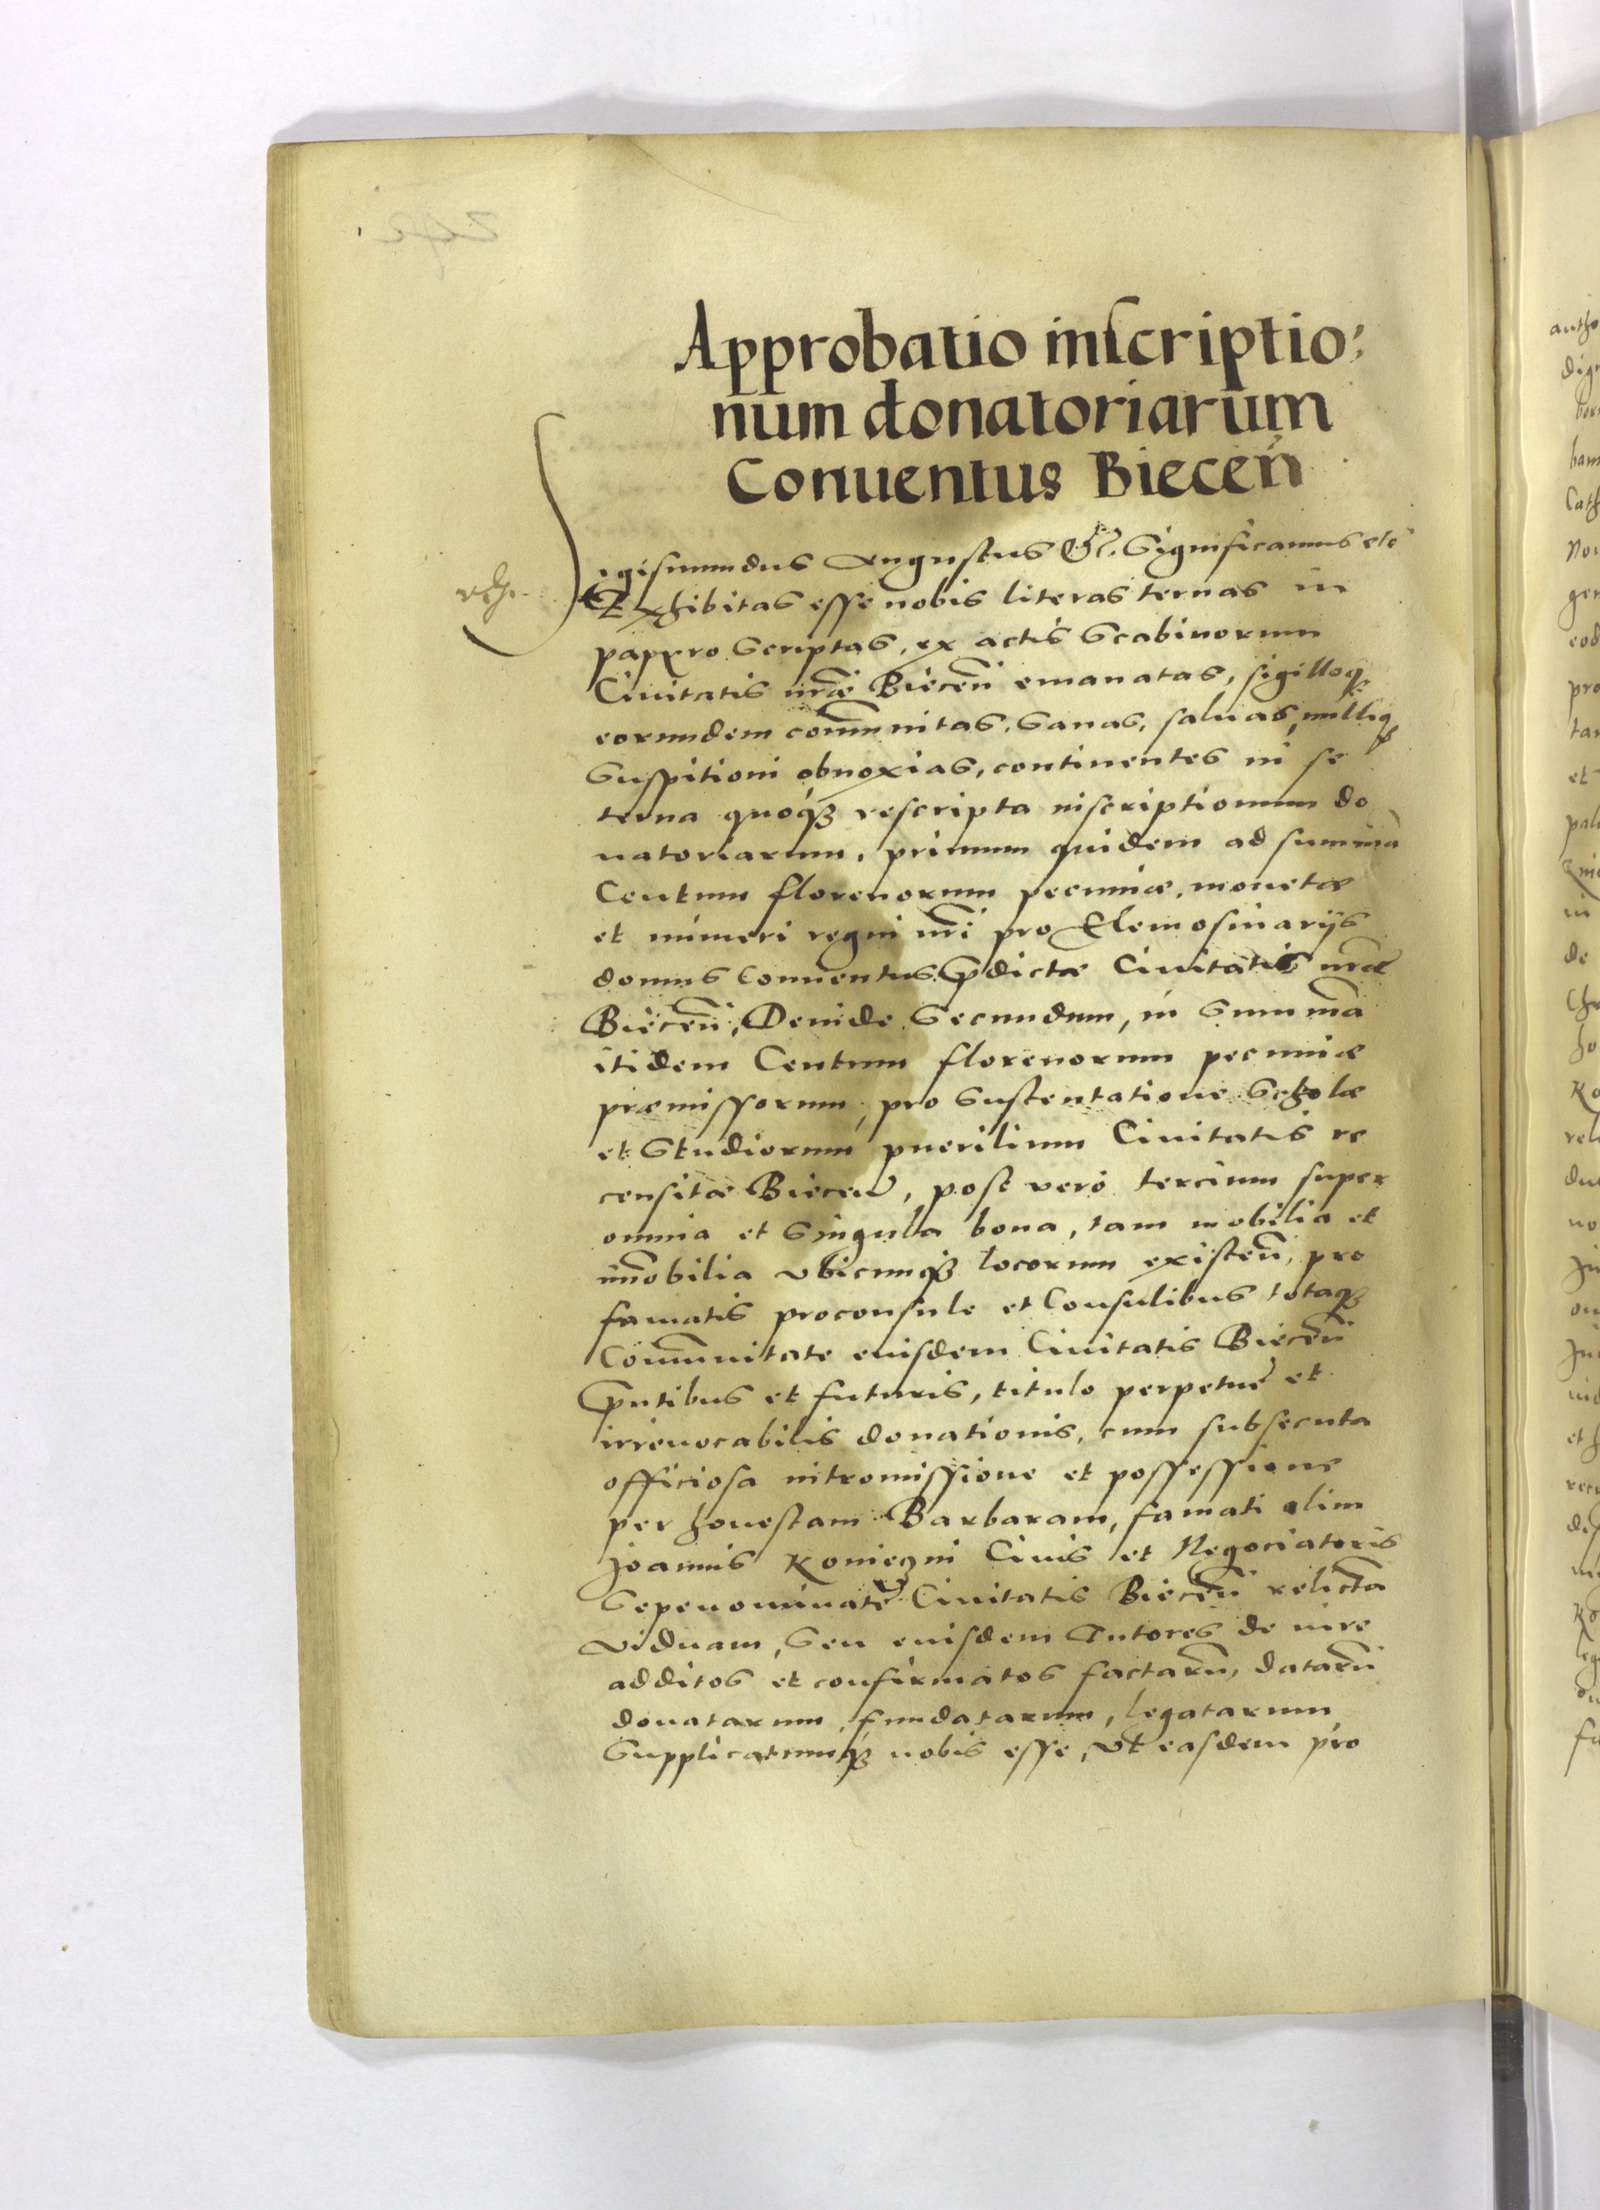 Approbatio inscriptio:
num donatoriarum
Conuentus Biecen̄
Sigismundus Augustus &c. Significamus etc̄
Exhibitas esse nobis literas ternas in
papyro Scriptas, ex actis Scabinorum
Ciuitatis nr̄æ Biecen̄ emanatas, sigilloqꝫ
eorundem com̄unitas, Sanas, saluas, nulliqꝫ
Suspitioni obnoxias, continentes in se
terna quoqꝫ rescripta inscriptionum do
natoriarum, primum quidem ad summā
Centum florenorum pecuniæ, monetæ
et numeri regni nr̄i pro Elemosinarijs
domus Conuentus p̄dictæ Ciuitatis nr̄æ
Biecen̄, Deinde Secundum, in Summa
itidem Centum florenorum pecuniæ
præmissorum, pro Sustentatione Scholæ
et Studiorum puerilium Ciuitatis re
censitæ Biecen̄, post vero tercium super
omnia et Singula bona, tam mobilia et
im̄obilia vbicunqꝫ locorum existen̄, pro
famatis proconsule et Consulibus totaqꝫ
Com̄unitate eiusdem Ciuitatis Biecen̄
p̄ntibus et futuris, titulo perpetuę et
irreuocabilis donationis, cum subsecuta
officiosa intromissione et possessione
per honestam Barbaram, famati olim
Joannis Konieczni Ciuis et Negociatoris
Sepenominatę Ciuitatis Biecen̄ relictā
Viduam, Seu eiusdem Tutores de iure
additos et confirmatos factarū, datarū
donatarum, fundatarum, legatarum
Supplicatumqꝫ nobis esse, Vt easdem pro